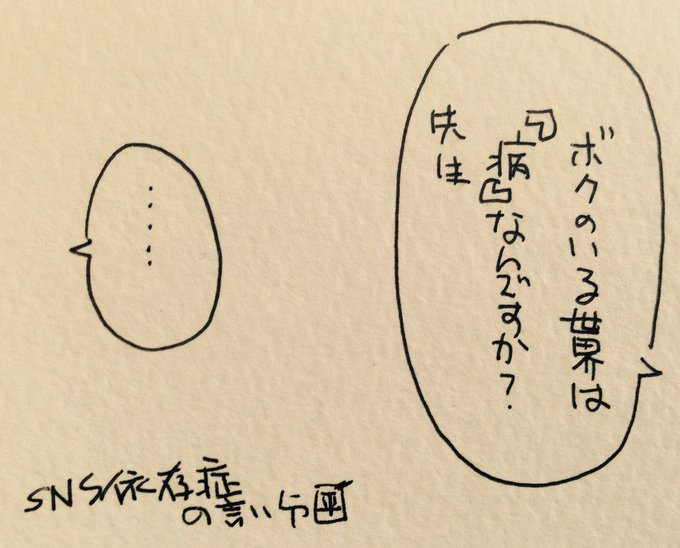 ボクのいる世界は
『病』なんですか?
先生
・・・・・
SNS依存症
の言い分